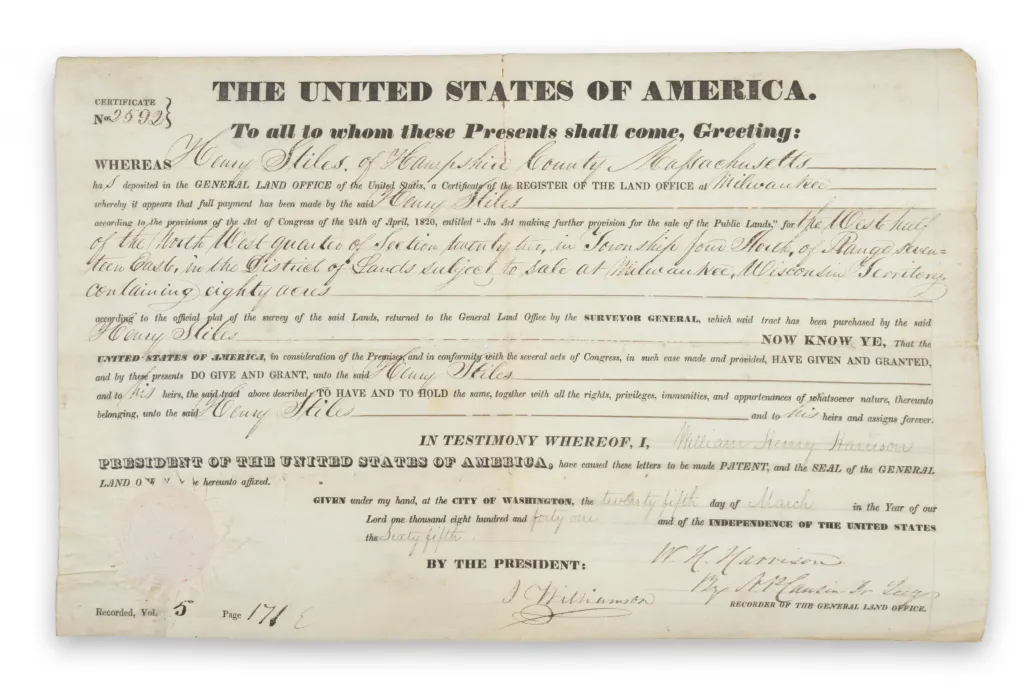 THE UNITED STATES OF AMERICA.
CERTIFICATE
No. 2592
To all to whom these Presents shall come, Greeting:
WHEREAS Henry Stiles, of Hampshire County Massachusetts
has deposited in the GENERAL LAND OFFICE of the United States, a Certificate of the REGISTER OF THE LAND OFFICE at Milwaukee
whereby it appears that full payment has been made by the said Henry Stiles
according to the provisions of the Act of Congress of the 24th of April, 1820, entitled "An Act making further provision for the sale of the Public Lands," for the West half
of the North West quarter of Section twenty two, in Township four North, of Range seven=
teen East, in the District of Lands subject to sale at Milwaukee, Wisconsin Territory,
containing eighty acres
according to the official plat of the survey of the said Lands, returned to the General Land Office by the SURVEYOR GENERAL, which said tract has been purchased by the said
Henry Stiles NOW KNOW YE, That the
UNITED STATES OF AMERICA, in consideration of the Premises, and in conformity with the several acts of Congress, in such case made and provided, HAVE GIVEN AND GRANTED,
and by these presents DO GIVE AND GRANT, unto the said Henry Stiles
and to his heirs, the said tract above described; TO HAVE AND TO HOLD the same, together with all the rights, privileges, immunities, and appurtenances of whatsoever nature, thereunto
belonging, unto the said Henry Stiles and to his heirs and assigns forever.
IN TESTIMONY WHEREOF, I, William Henry Harrison
PRESIDENT OF THE UNITED STATES OF AMERICA, have caused these letters to be made PATENT, and the SEAL of the GENERAL
LAND hereunto affixed.
GIVEN under my hand, at the CITY OF WASHINGTON, the twenty fifth day of March in the Year of our
Lord one thousand eight hundred and forty one and of the INDEPENDENCE OF THE UNITED STATES
the Sixty fifth.
BY THE PRESIDENT: W. H. Harrison
By Secy
J Williamson RECORDER OF THE GENERAL LAND OFFICE.
Recorded, Vol. 5 Page 171